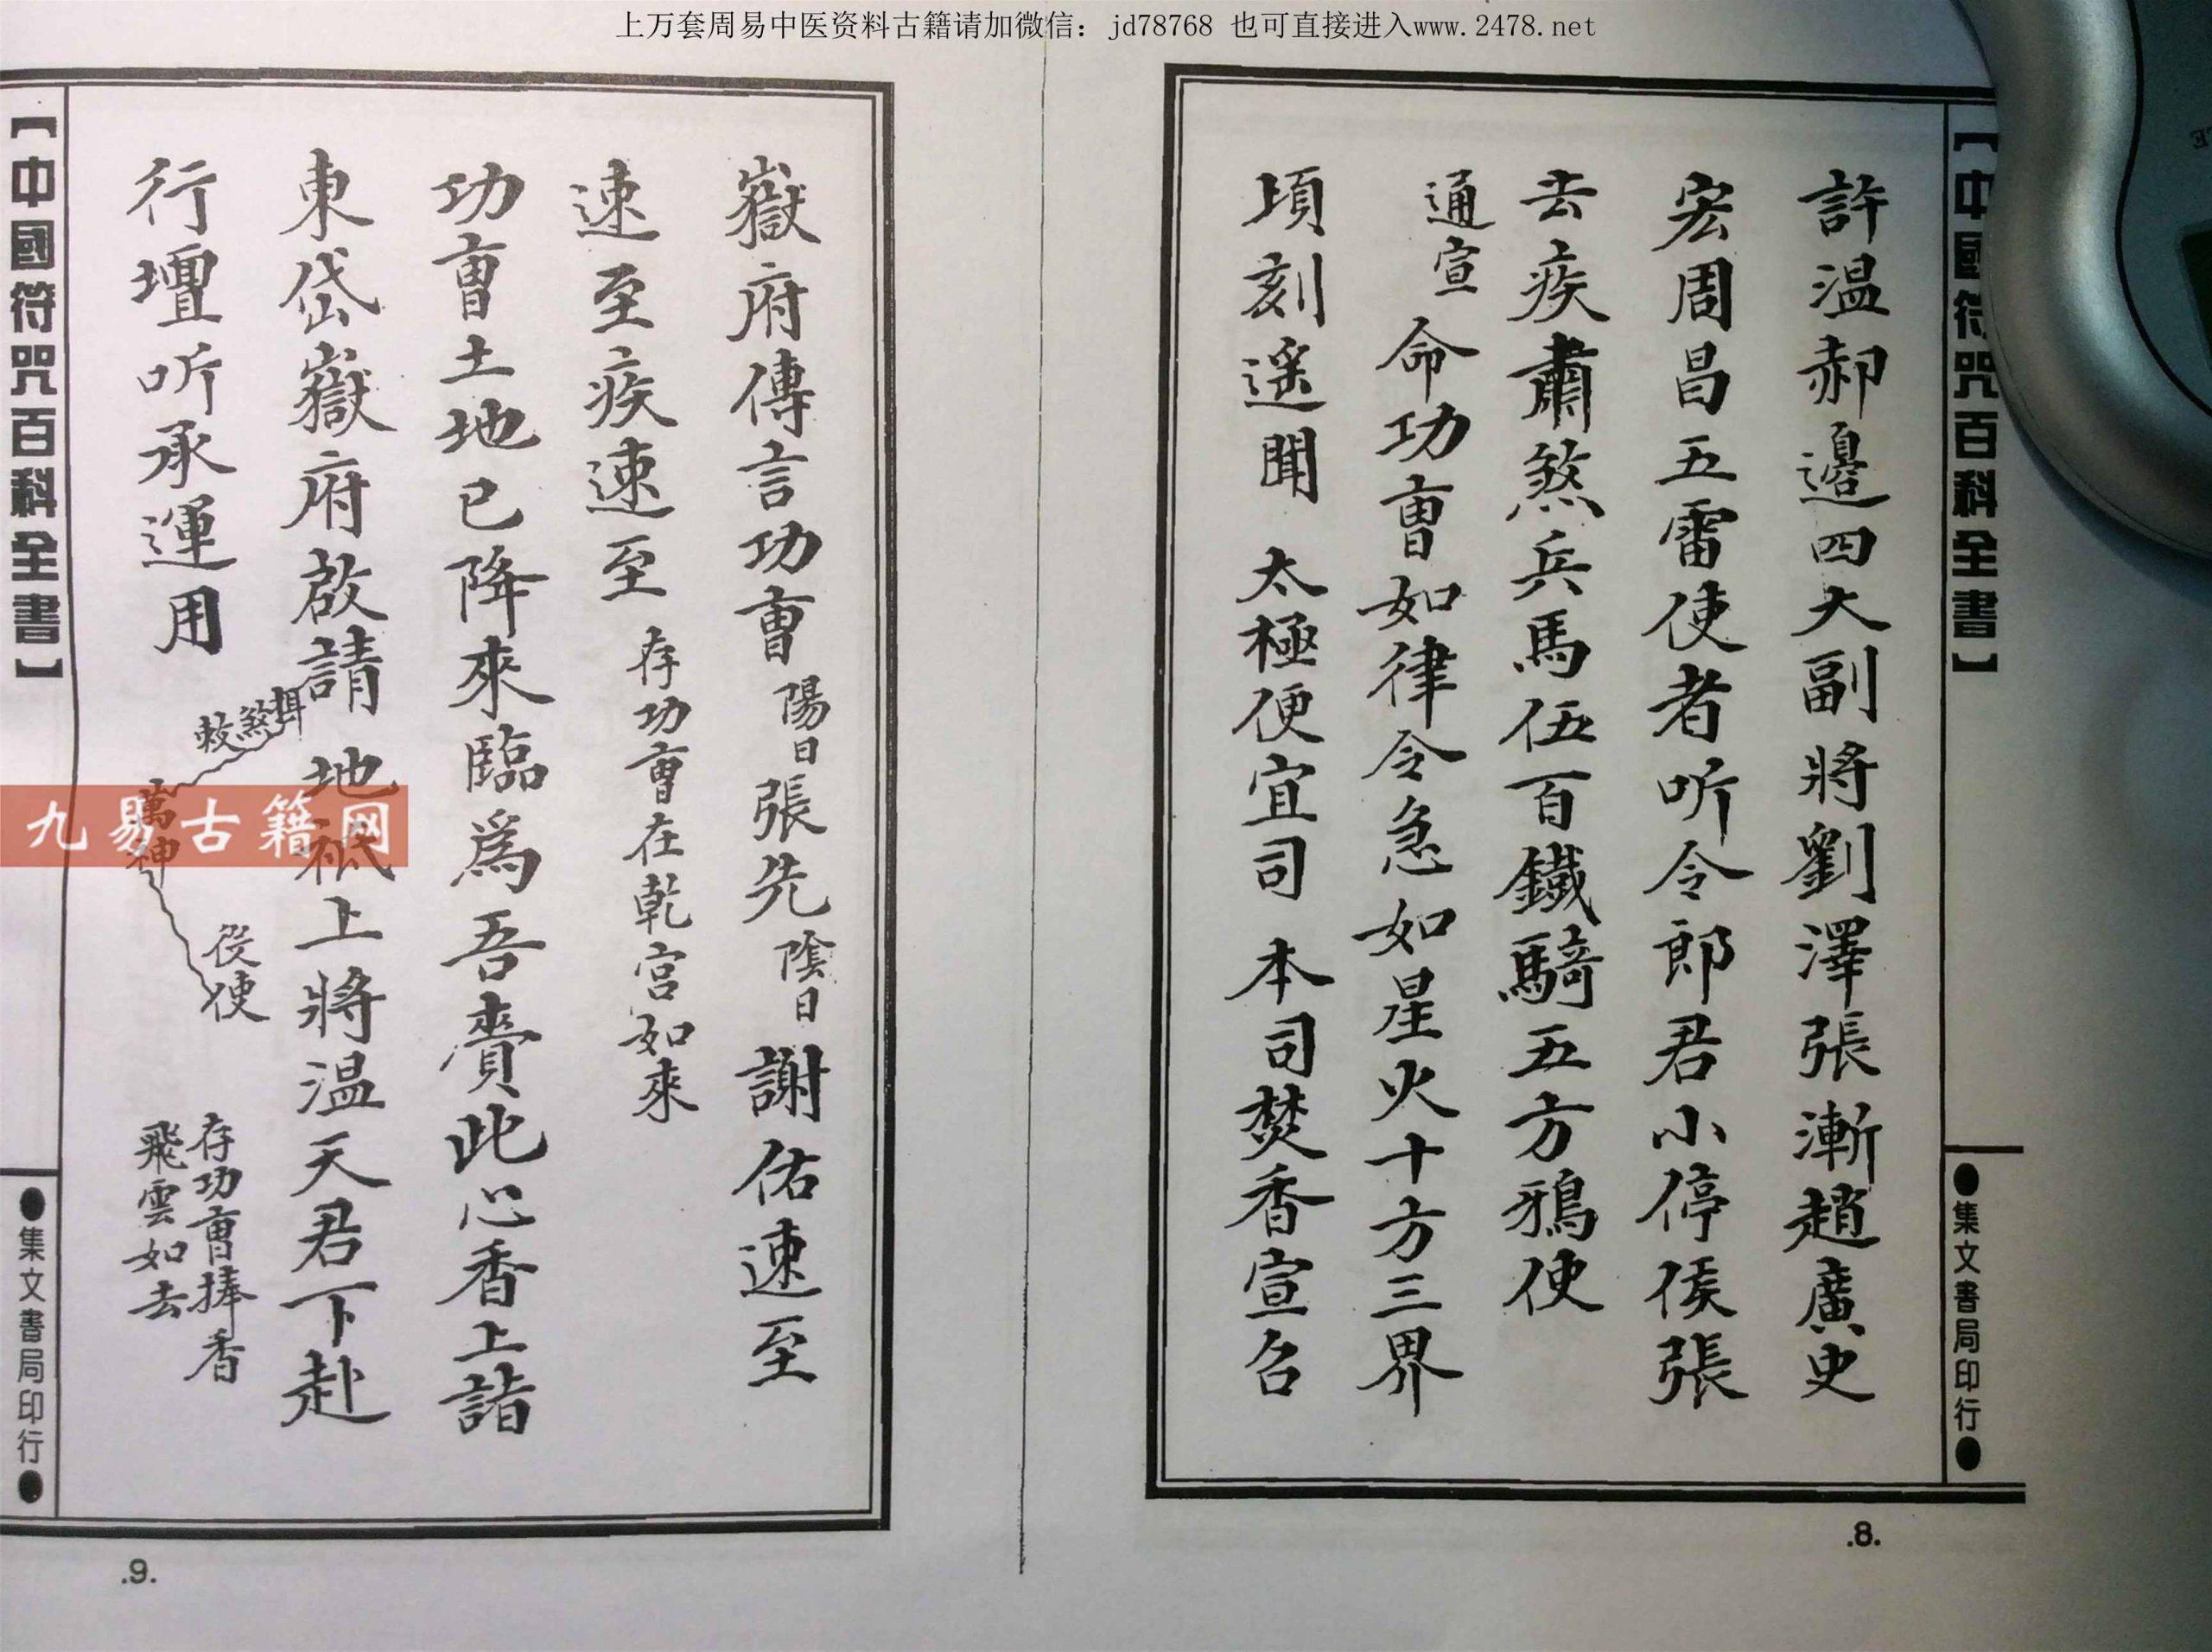 上万套周易中医资料古籍请加微信：jd78768 也可直接进入www.2478.net
【中國符咒百科全書】
●集文書局印行●
許温郝邊四大副將劉澤張漸趙廣史
宏周昌五雷使者听令郎君小停侯張
去疾肅煞兵馬伍百鐵騎五方鴉使
通宣
命功曹如律令急如星火十方三界
項刻遥聞 太極便宜司 本司焚香宣召
.8.
嶽府傳言功曹陽日張先陰日謝佑速至
速至疾速至存功曹在乾宫如來
功曹土地已降來臨爲吾賷此心香上詣
東岱嶽府啟請 地祇上將温天君下赴
行壇听承運用
煞
萬神
役使
存功曹捧香
飛雲如去
九易古籍网
【中國符咒百科全書】
●集文書局印行●
.9.